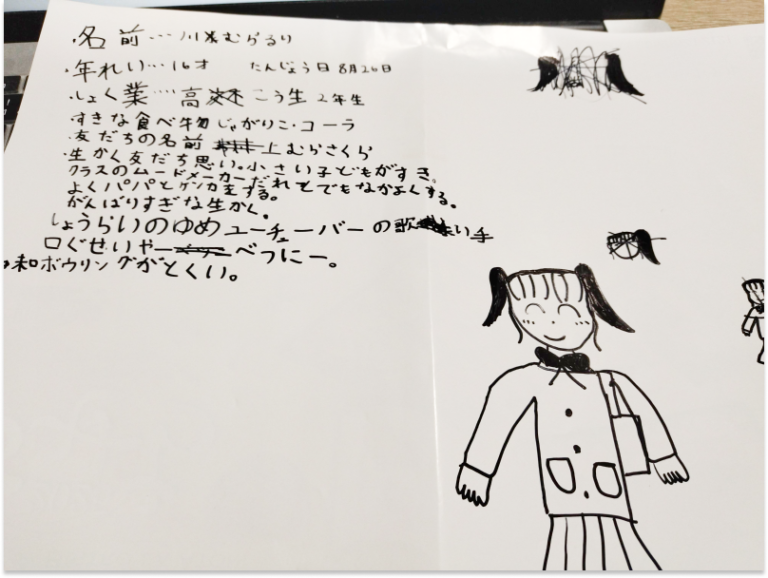 ・名前…川木むらるり
・年れい…16才 たんじょう日8月26日
・しょく業…高校 こう生 2年生
・すきな食べ物 じゃがりこ・コーラ
・友だちの名前 上むらさくら
・生かく友だち思い。小さい子どもがすき。
クラスのムードメーカーだれとでもなかよくする。
よくパパとケンカをする。
がんばりすぎな生かく。
しょうらいのゆめ ユーチューバーの歌い手
口ぐせいやー べつにー。
和ボウリングがとくい。